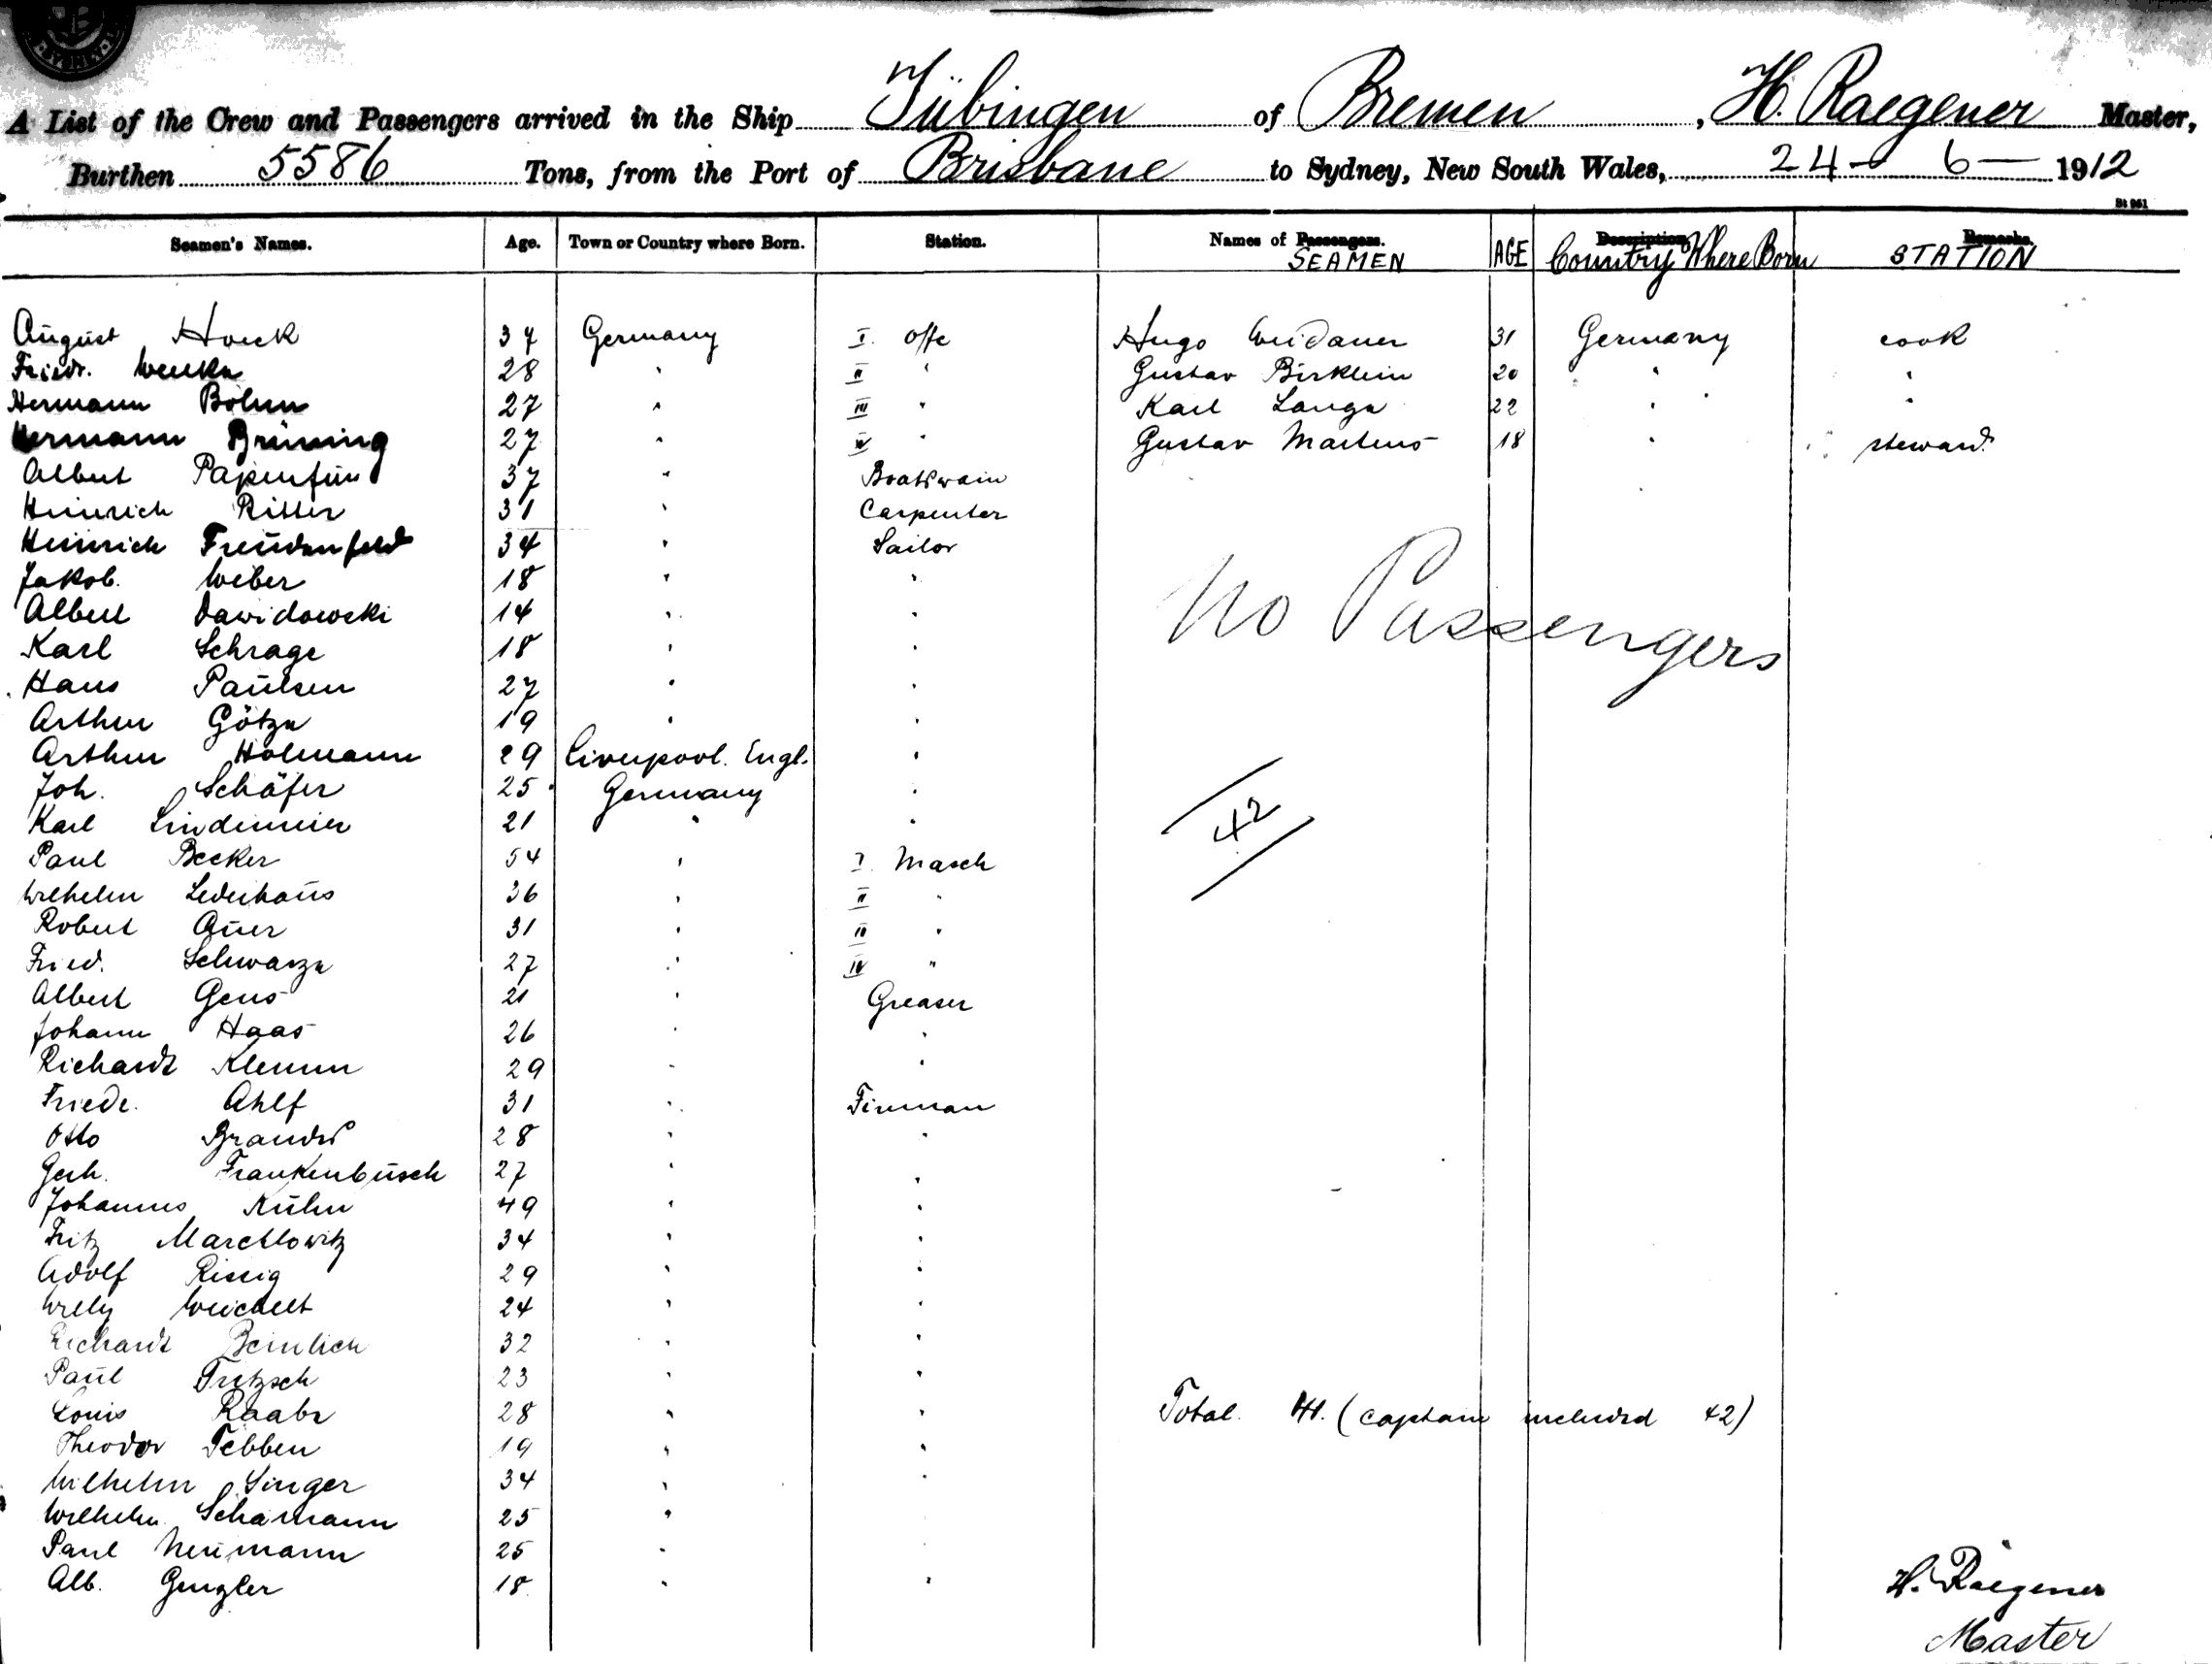 A List of the Crew and Passengers arrived in the Ship Tübingen of Bremen, H. Raegener Master,
Burthen 5586 Tons, from the Port of Brisbane to Sydney, New South Wales, 24 - 6 - 1912
Bt 961
Seamen's Names. Age. Town or Country where Born. Station. Names of Passengers. SEAMEN AGE Description Country Where Born Remarks. STATION
August Hoeck 37 Germany I. Offe Hugo Weidauer 31 Germany cook
Friedr. Wenke 28 " II " Gustav Birklein 20 " "
Hermann Böhm 27 " III " Karl Lange 22 " "
Hermann Brüning 27 " IV " Gustav Martens 18 " steward
Albert Papenfus 37 " Boatswain
Heinrich Ritter 31 " Carpenter
Heinrich Freudenfeld 34 " Sailor
Jakob. Weber 18 " "
Albert Dawidowski 14 " "
Karl Schrage 18 " "
Hans Paulsen 27 " "
Arthur Götze 19 " "
Arthur Holmann 29 Liverpool. Engl. "
Joh. Schäfer 25 Germany "
Karl Lindemeier 21 " "
Paul Becker 54 " I. Masch
Wilhelm Lederhaus 36 " II "
Robert Auer 31 " III "
Fried. Schwarze 27 " IV "
Albert Gens 21 " Greaser
Johann Haas 26 " "
Richardt Klemm 29 " "
Friedr. Ahlf 31 " Fireman
Otto Brandes 28 " "
Gerh. Frankenbusch 27 " "
Johannes Kühn 49 " "
Fritz Marchlowitz 34 " "
Adolf Rissig 29 " "
Willy Weichelt 24 " "
Richardt Beinlich 32 " "
Paul Fritzsch 23 " "
Louis Raabe 28 " "
Theodor Tebben 19 " "
Wilhelm Singer 34 " "
Wilhelm Schamann 25 "
Paul Neumann 25 "
Alb. Gengler 18 " "
No Passengers
42
Total. 41. (captain included 42)
H. Raegener
Master